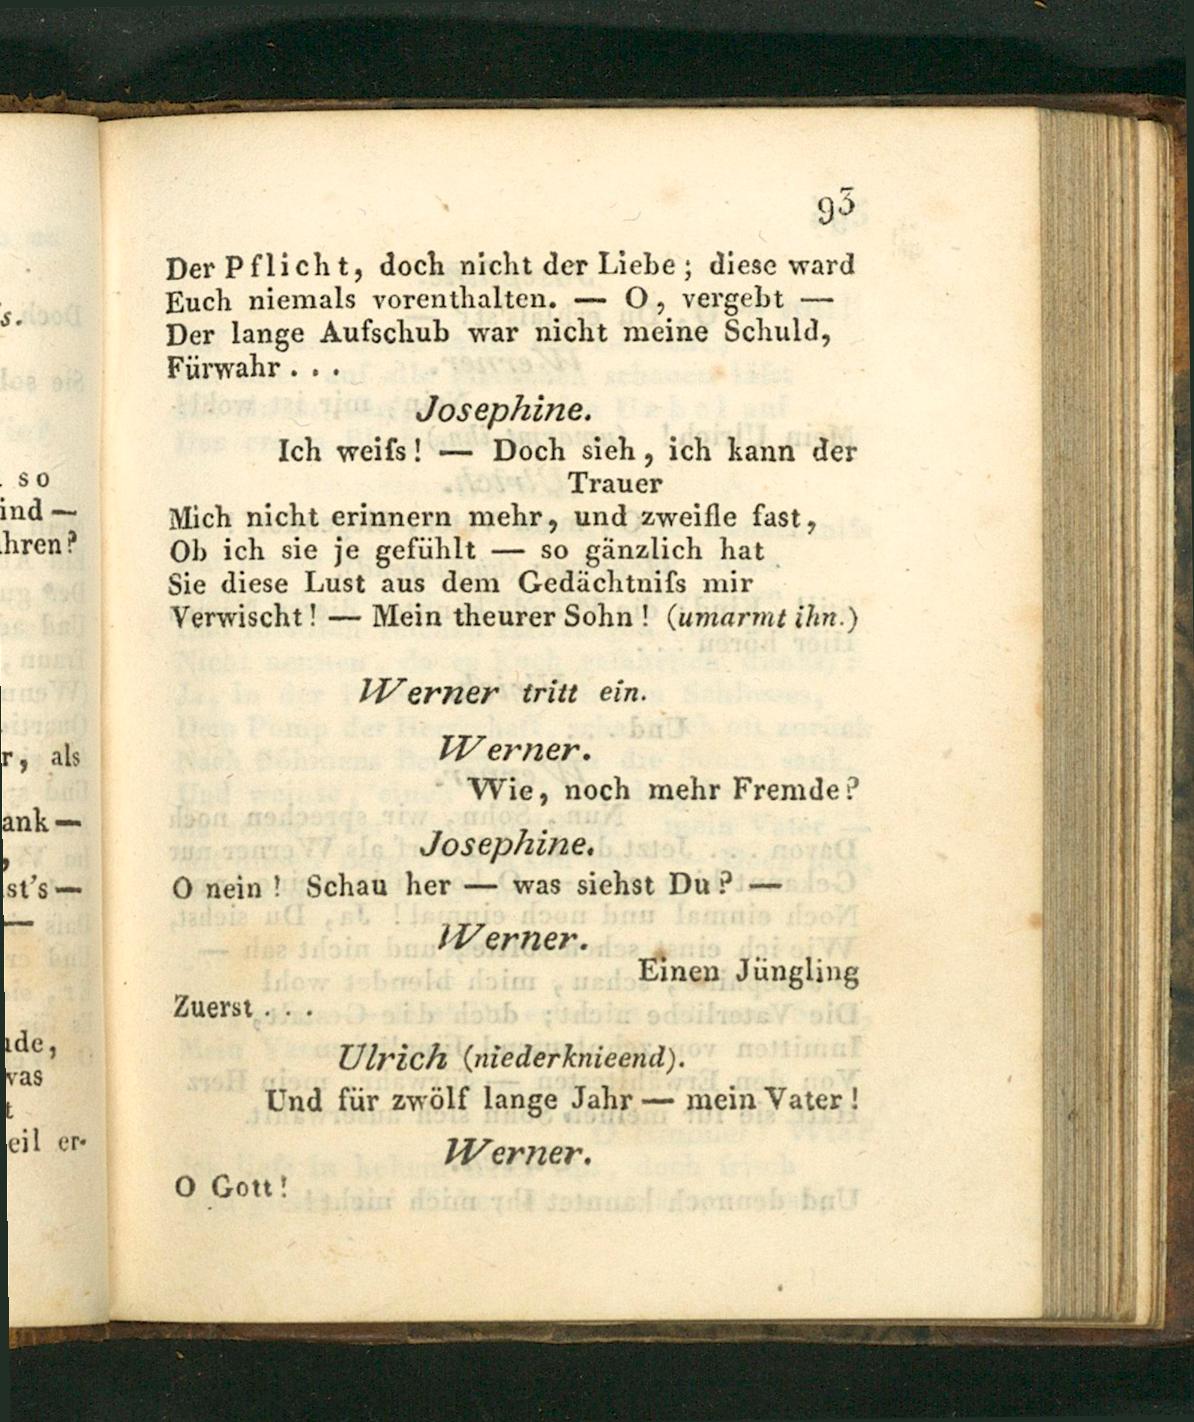 93
Der Pflicht, doch nicht der Liebe; diese ward
Euch niemals vorenthalten. — O, vergebt —
Der lange Aufschub war nicht meine Schuld,
Fürwahr . . .
Josephine.
Ich weiſs! — Doch sieh, ich kann der
Trauer
Mich nicht erinnern mehr, und zweifle fast,
Ob ich sie je gefühlt — so gänzlich hat
Sie diese Lust aus dem Gedächtniſs mir
Verwischt! — Mein theurer Sohn! (umarmt ihn.)
Werner tritt ein.
Werner.
Wie, noch mehr Fremde?
Josephine.
O nein! Schau her — was siehst Du? —
Werner.
Einen Jüngling
Zuerst . . .
Ulrich (niederknieend).
Und für zwölf lange Jahr — mein Vater!
Werner.
O Gott!
s.
so
ind —
hren?
r, als
ank —
,
st's —
—
de,
vas
t
eil er-